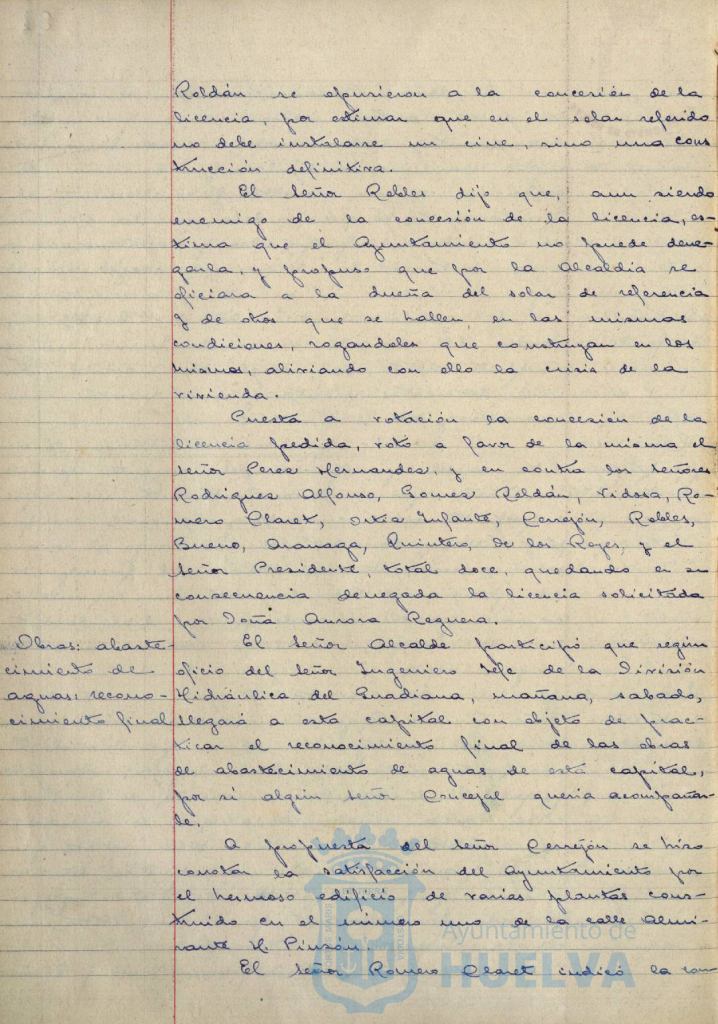 Roldán se opusieron a la concesión de la
licencia, por estimar que en el solar referido
no debe instalarse un cine, sino una cons
trucción definitiva.
El Señor Robles dijo que, aun siendo
enemigo de la concesión de la licencia, es-
tima que el Ayuntamiento no puede dene-
garla, y propuso que por la Alcaldía se
oficiara a la dueña del solar de referencia
y de otros que se hallen en las mismas
condiciones, rogandoles que construyan en los
mismos, aliviando con ello la crisis de la
vivienda.
Puesta a votación la concesión de la
licencia pedida, votó a favor de la misma el
Señor Perez Hernandez, y en contra los Señores
Rodriguez Alfonso, Gomez Roldán, Vidosa, Ro-
mero Claret, Ortiz Infante, Cerrejón, Robles,
Bueno, Aranaga, Quintero, de los Reyes, y el
Señor Presidente, total doce, quedando en su
consecuencia denegada la licencia solicitada
por Doña Aurora Reguera.
Obras: abaste-
cimiento de
aguas: recono-
cimiento final
El Señor Alcalde participó que según
oficio del Señor Ingeniero Jefe de la División
Hidráulica del Guadiana, mañana, sabado,
llegará a esta capital con objeto de prac-
ticar el reconocimiento final de las obras
de abastecimiento de aguas de esta capital,
por si algún Señor Concejal queria acompañar-
le.
A propuesta del Señor Cerrejón se hizo
constar la satisfacción del Ayuntamiento por
el hermoso edificio de varias plantas cons-
truido en el número uno de la calle Almi-
rante H. Pinzón.
El Señor Romero Claret indicó la con-
Ayuntamiento de
HUELVA